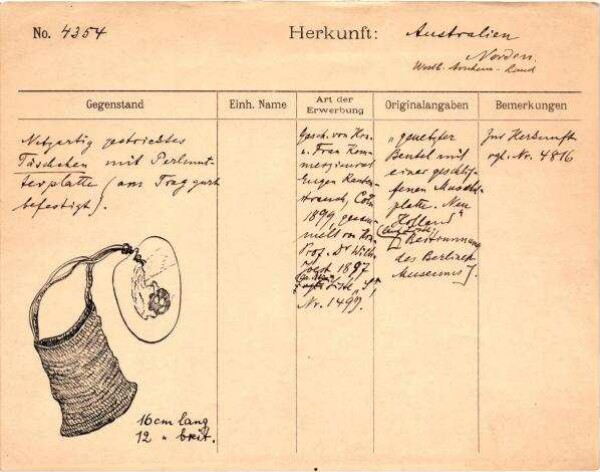 No. 4354
Herkunft:
Australien
Norden.
Westl. Arnhem-Land
Gegenstand
Einh. Name
Art der Erwerbung
Originalangaben
Bemerkungen
Netzartig gestricktes
Täschchen mit Perlmut-
terplatte (am Traggurt
befestigt).
Gesch. von Hrn.
u. Frau Kom-
merzienrat
Eugen Rauten-
strauch, Cöln
1899, gesam-
melt von Hrn.
Prof. Dr Wilh.
Joest 1897
Nr. 1499.
"genetzter
Beutel mit
einer geschlif-
fenen Muschel-
platte. Neu
Holland"
[Bestimmung
des Berliner
Museums].
Zur Herkunft
vgl. Nr. 4816
16 cm lang
12 " breit.